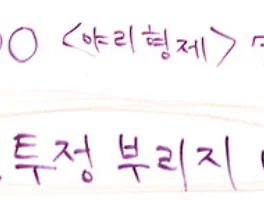 <야리형제>
투정 부리지